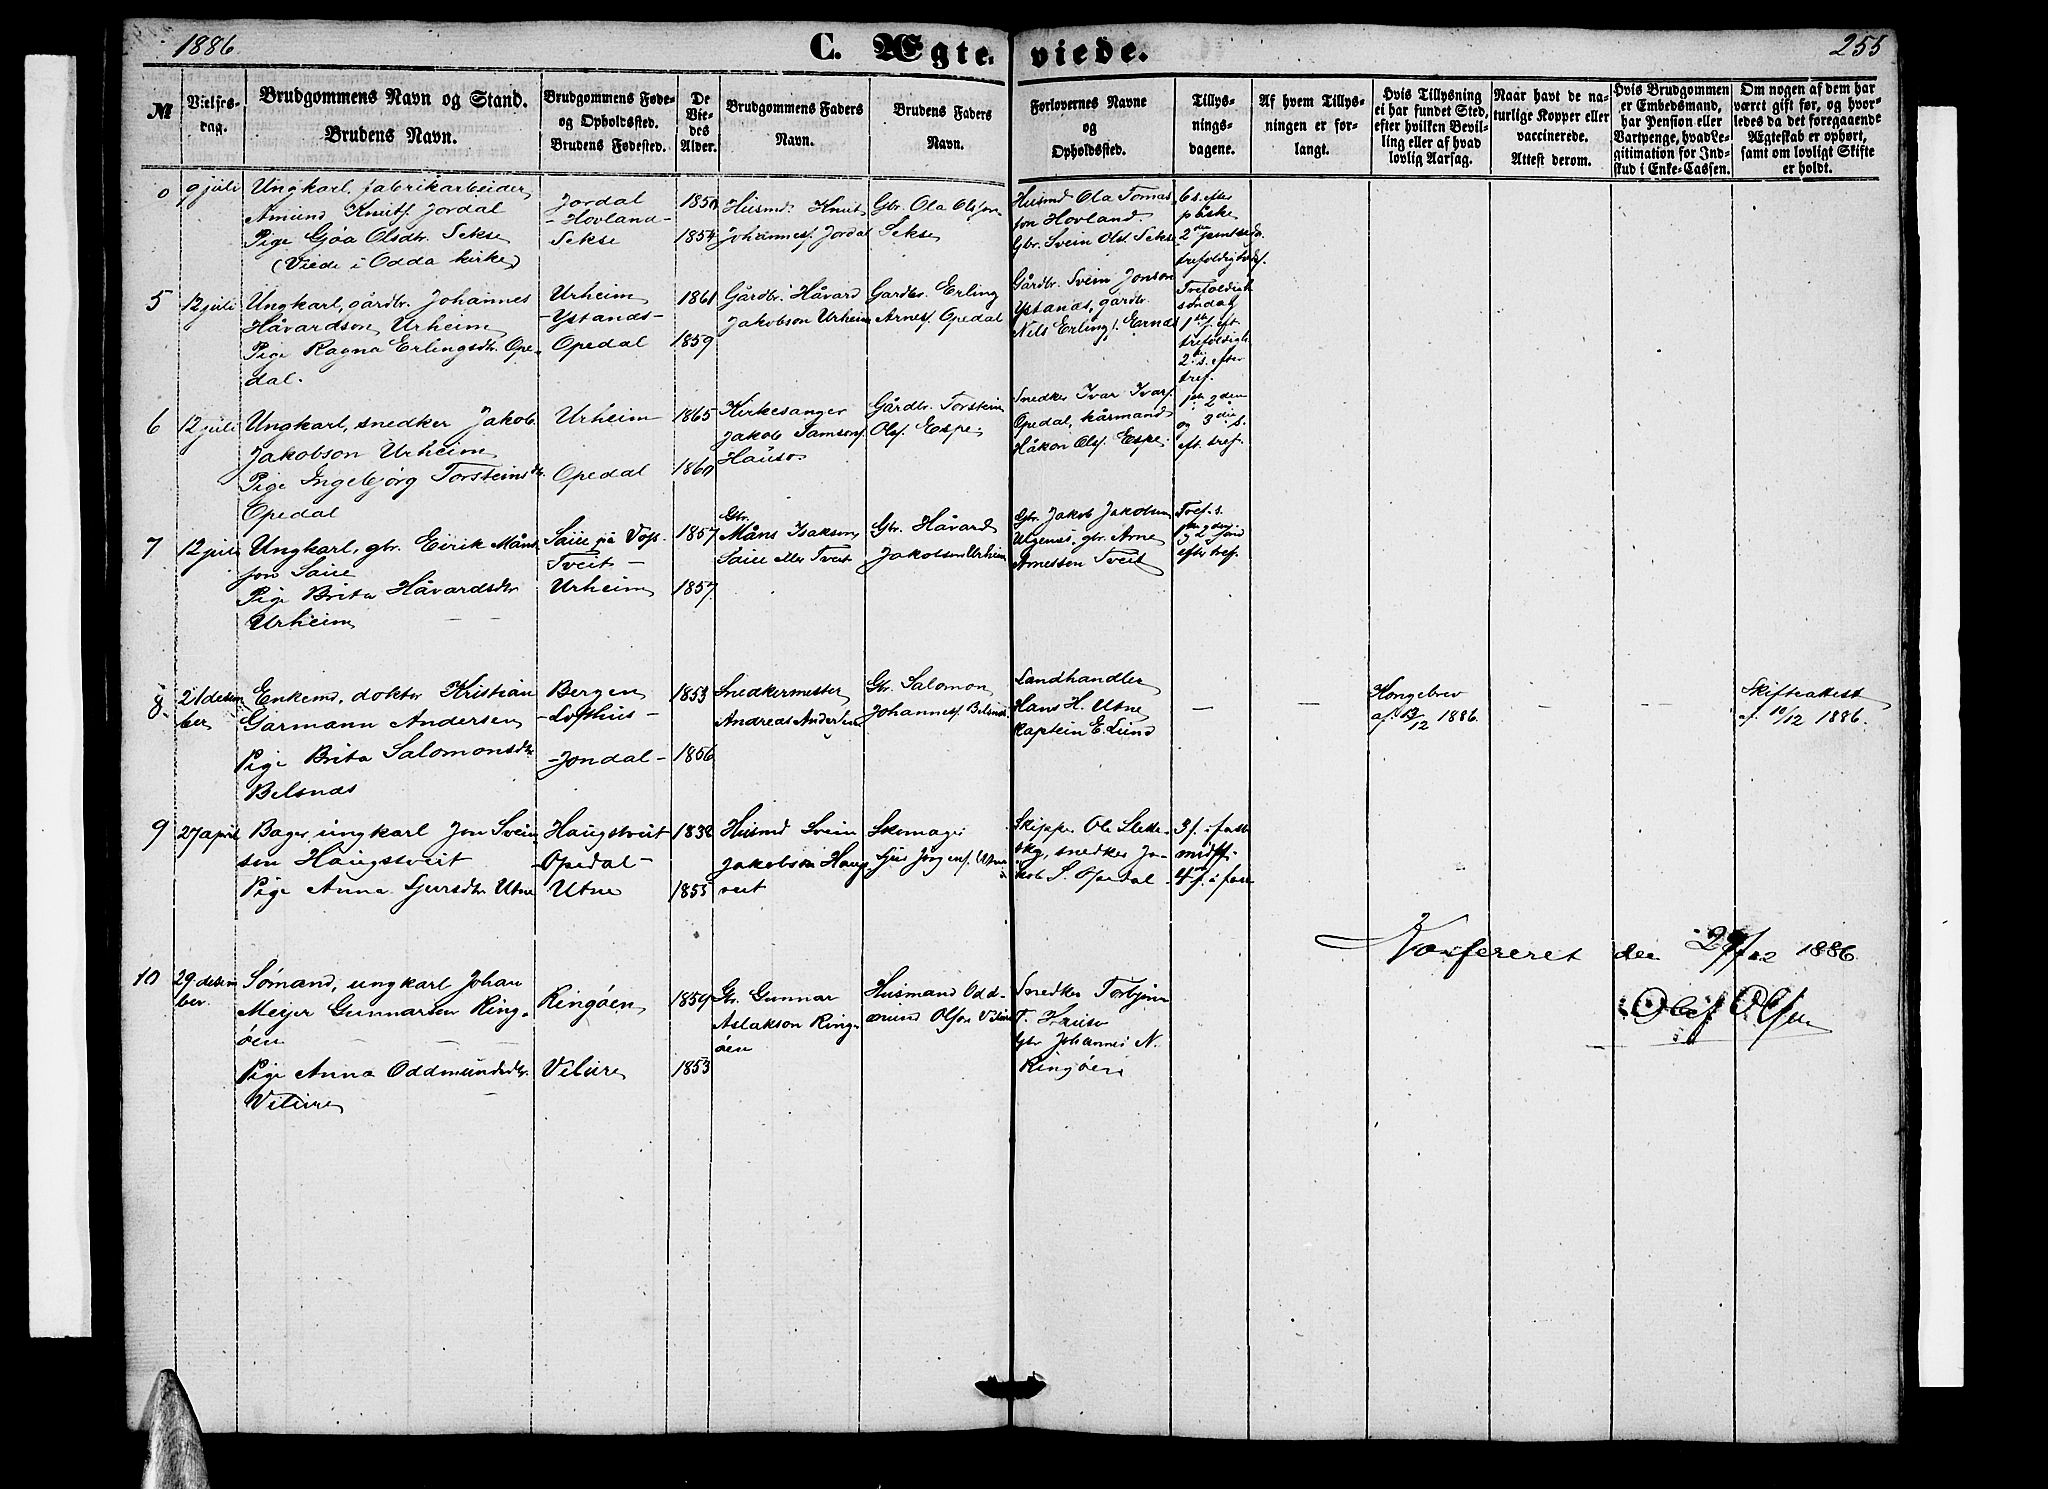 1886
C. Ægte-
viede.
255
№
Vielses-
dag.
Brudgommens Navn og Stand.
Brudens Navn.
Brudgommens Føde-
og Opholdssted.
Brudens Fødested.
De
Vie-
des
Alder.
Brudgommens Faders
Navn.
Brudens Faders
Navn.
Forlovernes Navne
og
Opholdssted.
Tillys-
nings-
dagene.
Af hvem Tillys-
ningen er for-
langt.
Hvis Tillysning
ei har fundet Sted,
efter hvilken Bevil-
ling eller af hvad
lovlig Aarsag.
Naar havt de na-
turlige Kopper eller
vaccinerede.
Attest derom.
Hvis Brudgommen
er Embedsmand,
har Pension eller
Vartpenge, hvad Le-
gitimation for Ind-
skud i Enke-Cassen.
Om nogen af dem har
været gift før, og hvor-
ledes da det foregaaende
Ægteskab er ophørt,
samt om lovligt Skifte
er holdt.
0
9 juli
Ungkarl, fabrikarbeider
Amund Knuts. Jordal
Pige Gjøa Olsdtr. Sekse
(Viede i Odda kirke)
Jordal
- Hovland -
Sekse
1854
Husmd. Knut
Johanness. Jordal
Gbr. Ola Olsson
Sekse
Husmd Ola Tomas
son Hovland.
Gbr. Svein Ols. Sekse
6 s. efter
påske
5
12 juli
Ungkarl, gårdbr. Johannes
Håvardson Urheim
Pige Ragna Erlingsdtr. Ope-
dal.
Urheim
- Ystanes -
Opedal
1861
1859
Gårdbr. Håvard
Jakobson Urheim
Gardbr. Erling
Arnes. Opedal
Gårdbr. Svein Jonson
Ystanæs, gardbr.
Nils Erlings.
Trefoldigh.
søndag
2den s. efter
tref.
6
12 juli
Ungkarl, snedker Jakob
Jakobson Urheim
Pige Ingebjørg Torsteinsdtr.
Opedal
Urheim
Opedal
1865
1860
Kirkesanger
Jakob Samsons.
Hauso
Gårdbr. Torstein
Ols. Espe
Snedker Ivar Ivars.
Opedal, kårmand
Håkon Ols. Espe.
1ste, 2den
og 3die s.
eft. tref.
7
12 juli
Ungkarl, gbr. Eirik Måns-
son Saue
Pige Brita Håvardsdtr
Urheim
Saue på Voss
Tveit -
Urheim
1857
1857
Gbr.
Måns Isakson
Saue eller Tveit
Gbr. Håvard
Jakobson Urheim
Gbr. Jakob Jakobson
Ulgenes, gbr. Arne
Arnesson Tveit
Tref. s.
efter tref.
8
21 desem
ber
Enkemd, doktor Kristian
Garmann Andersen
Pige Brita Salomonsdtr
Belsnæs
Bergen
- Lofthus -
- Jondal -
1853
1856
Snedkermester
Andreas Andersen
Gbr. Salomon
Johanness. Belsnæs
Landhandler
Hans H. Utne
Kaptein E. Lund
Kongebrev
af 13/12 1886.
Skifteattest
af 10/12 1886.
9
27 april
Bager, ungkarl Jon Svein-
son Haugstveit
Pige Anna Sjursdtr Utne
Haugstveit
- Opedal -
Utne
1832
1855
Husmd Svein
Jakobson Haug
veit
Skomager
Sjur Jørgens. Utne
Skipper Ole Slette-
skog, snedker Ja-
kob S. Opedal
3 s. i faste
midf.
4 s. i faste
Konfereret den 29/12 1886.
Olaf Olsen
10
29 desem
ber.
Sømand, ungkarl Johan
Meijer Gunnarson Ring-
øen
Pige Anna Oddmundsdtr.
Vilure
Ringøen
Vilure
1859
1853
Gbr. Gunnar
Aslakson Ring-
øen
Husmand Odd-
mund Olson Vilure
Snedker Torbjørn
T. Hauso
Gbr Johannes N.
Ringøen